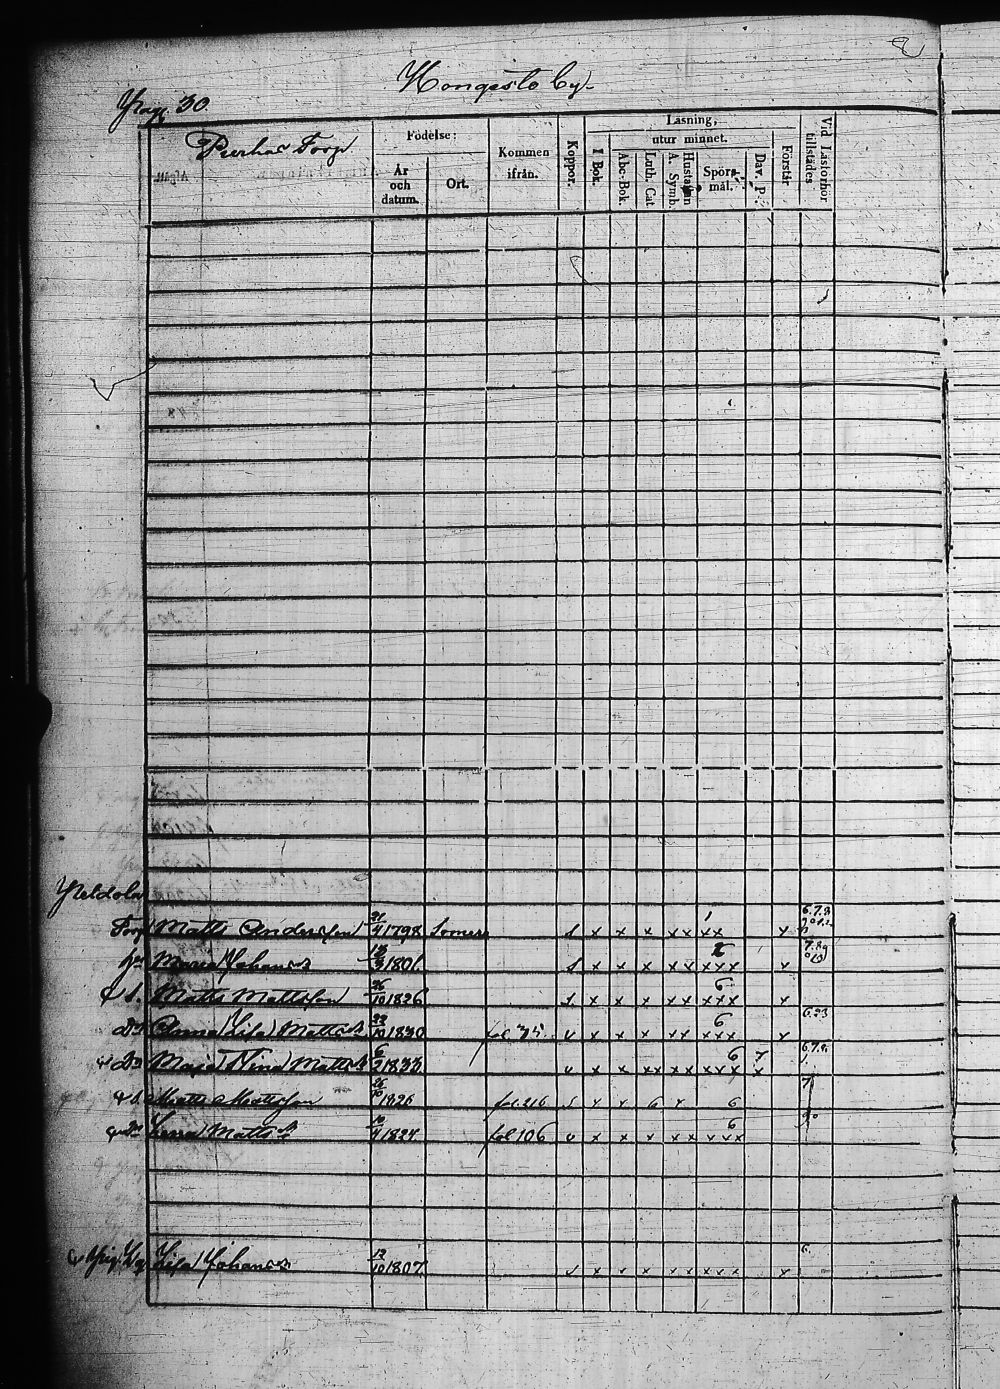 Hongisto by.
Pag. 30
Torp
Födelse:
År och datum.
Ort.
Kommen ifrån.
Koppor.
Läsning,
I Bok.
utur minnet.
Abc-Bok.
Luth. Cat.
Hustaflan A. Symb.
Spörs-mål.
Dav. P.
Förstår
Vid Läsförhör tillstädes
Torp Matts Andersson 21/4 1798 Somero s x x x xx xx x 6.7.8
hu Maria Johansd 13/3 1801. s x x x xx xxx x 7.8.9
S. Matts Mattsson 26/10 1826 s x x x xx 6 xxx x
Dr Anna Lisa Mattsd 22/10 1830 fol. 35. v x x x xx 6 xxx x 6.
Dr Maja Stina Mattsd 6/2 1833 v x x xx xx 6 xxx x 6.7.8.
S. Matts Mattsson 1826 fol. 216 s x x 6 x 6 7
Lena Mattsd 10/4 1824 fol 106 v x x x xx 6 xxx
Lisa Johansd 12/10 1807 s x x x xx xxx x 6.